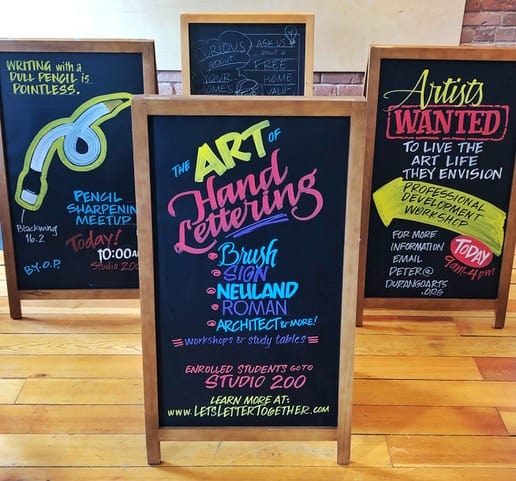 WRITING with a
DULL PENCIL is
POINTLESS.
Blackwing
16.2
PENCIL
SHARPENIN
MEETUP
Today!
10:00A
Studio 200
B.Y.O.P.
CURIOUS
ABOUT
YOUR
HOMES
ASK US
ABOUT a
FREE
HOME
VALUE
THE ART OF
Hand
Lettering
Brush
SIGN
NEULAND
ROMAN
ARCHITECT & MORE!
workshops & study tables
ENROLLED STUDENTS GO TO
STUDIO 200
LEARN MORE AT:
www.LETSLETTERTOGETHER.com
Artists
WANTED
TO LIVE THE
ART LIFE
THEY ENVISION
PROFESSIONAL
DEVELOPMENT
WORKSHOP
FOR MORE
INFORMATION
EMAIL
DETER@
DURANGOARTS
.ORG
TODAY
9am-4pm